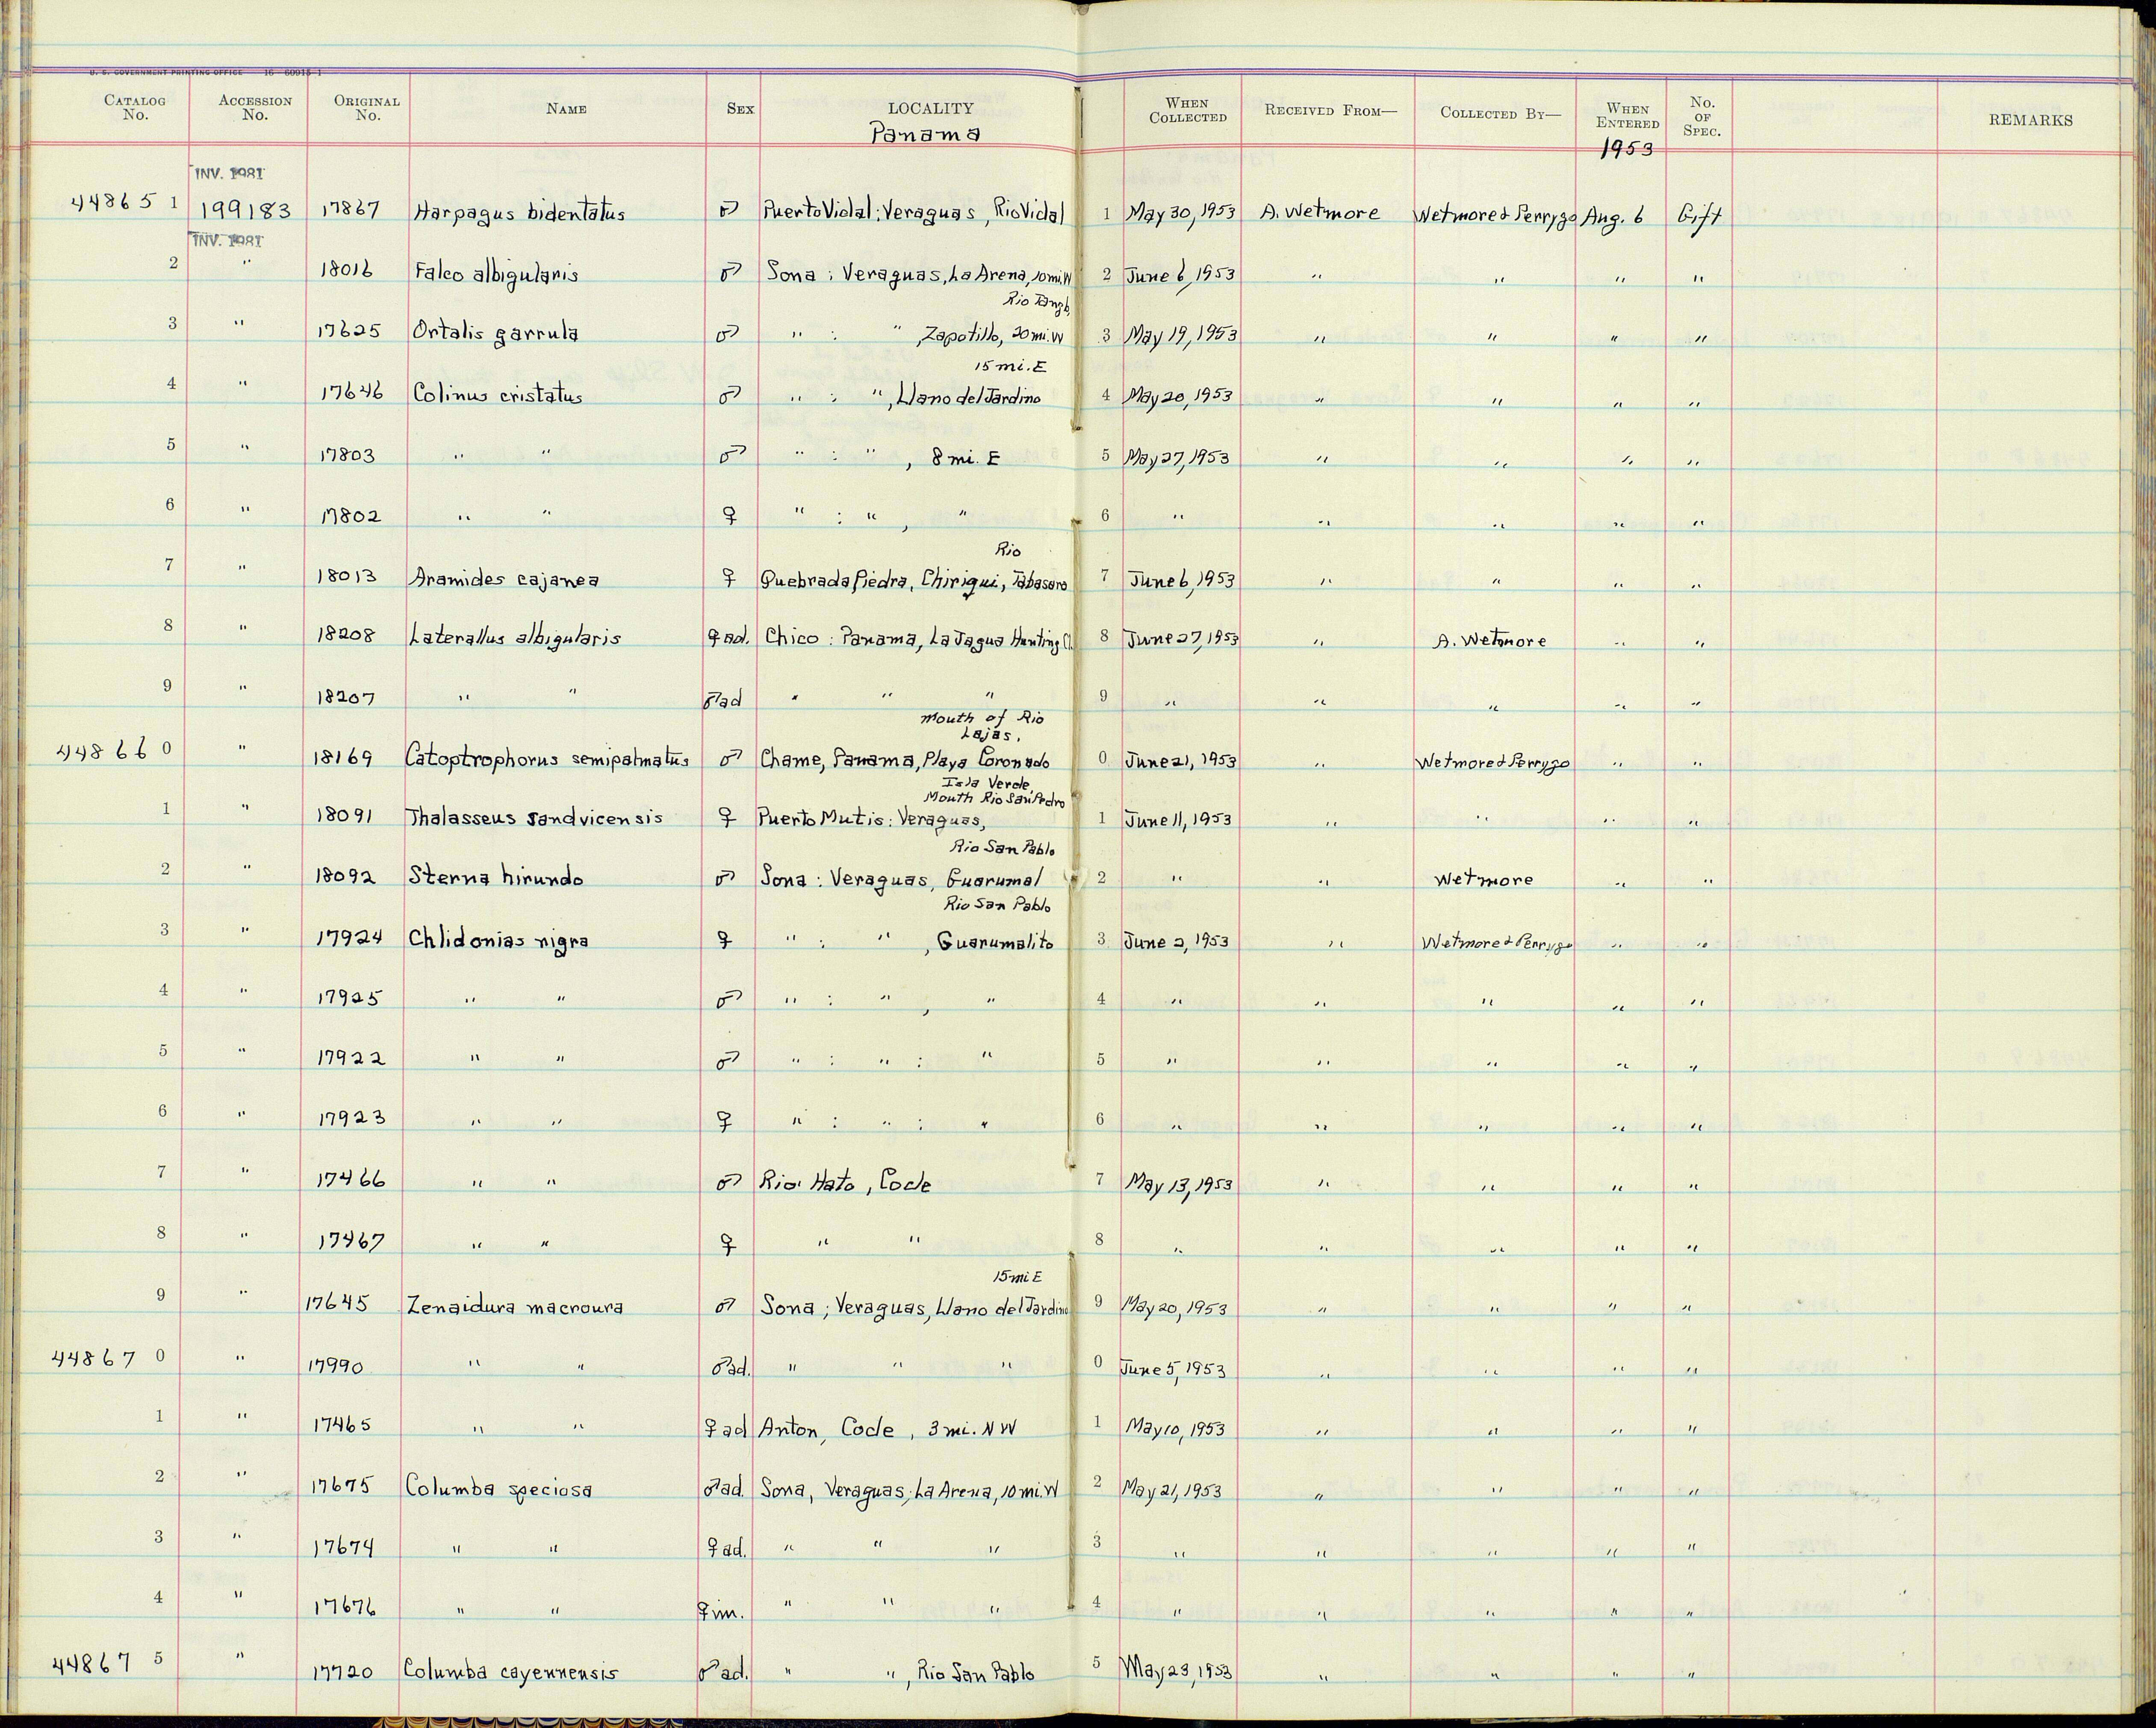 U. S. GOVERNMENT PRINTING OFFICE 16—60915-1
CATALOG No. ACCESSION No. ORIGINAL No. NAME SEX LOCALITY WHEN COLLECTED RECEIVED FROM— COLLECTED BY— WHEN ENTERED No. OF SPEC. REMARKS
Panama 1953
INV. 1981
448651 199183 17867 Harpagus bidentatus ♂ Puerto Vidal; Veraguas, Rio Vidal 1 May 30, 1953 A. Wetmore Wetmore & Perrygo Aug. 6 Gift
INV. 1981
2 " 18016 Falco albigularis ♂ Sona : Veraguas, La Arena, 10 mi. W 2 June 6, 1953 " " " "
3 " 17625 Ortalis garrula ♂ " : " , Zapotillo, 20 mi. W 3 May 19, 1953 " " " "
15 mi. E
4 " 17646 Colinus cristatus ♂ " : ", Llano del Jardino 4 May 20, 1953 " " " "
5 " 17803 " " ♂ " : " , 8 mi. E 5 May 27, 1953 " " " "
6 " 17802 " " ♀ " : " , " 6 " " " " "
Rio
7 " 18013 Aramides cajanea ♀ Quebrada Piedra, Chiriqui, Tabasara 7 June 6, 1953 " " " "
8 " 18208 Laterallus albigularis ♀ ad. Chico : Panama, La Jagua Hunting Cl. 8 June 27, 1953 " A. Wetmore " "
9 " 18207 " " ♂ ad " " " 9 " " " " "
Mouth of Rio
Lajas,
448660 " 18169 Catoptrophorus semipalmatus ♂ Chame, Panama, Playa Coronado 0 June 21, 1953 " Wetmore & Perrygo " "
Isla Verde,
Mouth Rio San Pedro
1 " 18091 Thalasseus sandvicensis ♀ Puerto Mutis: Veraguas, 1 June 11, 1953 " " " "
Rio San Pablo
2 " 18092 Sterna hirundo ♂ Sona : Veraguas, Guarumal 2 " " Wetmore " "
Rio San Pablo
3 " 17924 Chlidonias nigra ♀ " : " , Guarumalito 3 June 2, 1953 " Wetmore & Perrygo " "
4 " 17925 " " ♂ " : " , " 4 " " " " "
5 " 17922 " " ♂ " : " : " 5 " " " " "
6 " 17923 " " ♀ " : " : " 6 " " " " "
7 " 17466 " " ♂ Rio Hato, Cocle 7 May 13, 1953 " " " "
8 " 17467 " " ♀ " " 8 " " " " "
15 mi E
9 " 17645 Zenaidura macroura ♂ Sona ; Veraguas, Llano del Jardino 9 May 20, 1953 " " " "
448670 " 17990 " " ♂ ad. " " " 0 June 5, 1953 " " " "
1 " 17465 " " ♀ ad Anton, Cocle, 3 mi. NW 1 May 10, 1953 " " " "
2 " 17675 Columba speciosa ♂ ad. Sona, Veraguas, La Arena, 10 mi. W 2 May 21, 1953 " " " "
3 " 17674 " " ♀ ad. " " " 3 " " " " "
4 " 17676 " " ♀ im. " " " 4 " " " " "
448675 " 17720 Columba cayennensis ♂ ad. " ", Rio San Pablo 5 May 23, 1953 " " " "